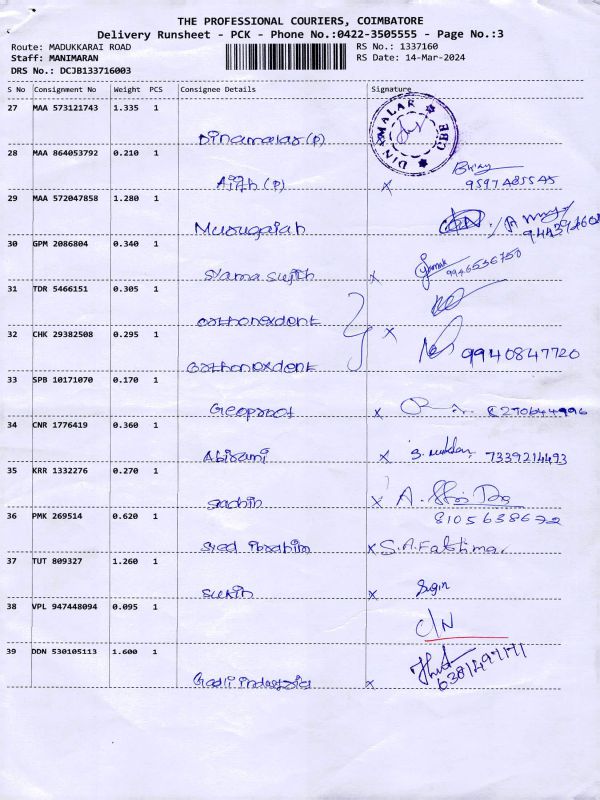 THE PROFESSIONAL COURIERS, COIMBATORE
Delivery Runsheet - PCK - Phone No.:0422-3505555 - Page No.:3
Route: MADUKKARAI ROAD
RS No.: 1337160
Staff: MANIMARAN
RS Date: 14-Mar-2024
DRS No.: DCJB133716003
S No Consignment No Weight PCS Consignee Details Signature
27 MAA 573121743 1.335 1
DINAMALAR CBE
Dinamalar (P)
28 MAA 864053792 0.210 1
Ajith (P) x 9597485545
29 MAA 572047858 1.280 1
Murugaiah
30 GPM 2086804 0.340 1
Slama sujith x 9946536750
31 TDR 5466151 0.305 1
orthonexdent
32 CHK 29382508 0.295 1
x 9940847720
orthonexdent
33 SPB 10171070 0.170 1
Geoproof x 8270644996
34 CNR 1776419 0.360 1
Abirami x 7339214493
35 KRR 1332276 0.270 1
Sachin x A.
36 PMK 269514 0.620 1
8105638672
Syed ibrahim x S.A.Fathima
37 TUT 809327 1.260 1
Sujin x Sugin
38 VPL 947448094 0.095 1
C/N
39 DDN 530105113 1.600 1
6381497171
x